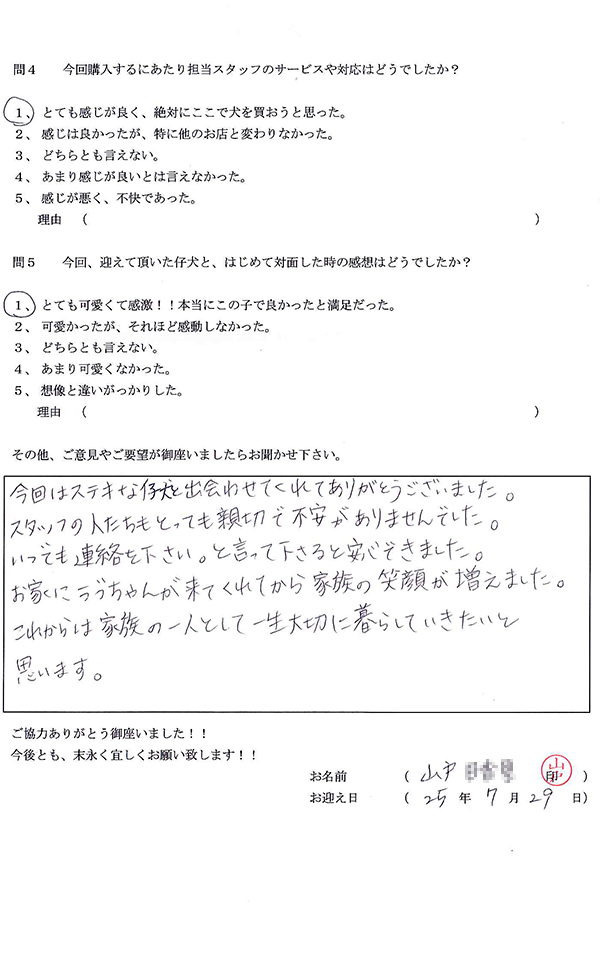 問4　今回購入するにあたり担当スタッフのサービスや対応はどうでしたか？
1、とても感じが良く、絶対にここで犬を買おうと思った。
2、感じは良かったが、特に他のお店と変わりなかった。
3、どちらとも言えない。
4、あまり感じが良いとは言えなかった。
5、感じが悪く、不快であった。
理由　(　　　)
問5　今回、迎えて頂いた仔犬と、はじめて対面した時の感想はどうでしたか？
1、とても可愛くて感激！！本当にこの子で良かったと満足だった。
2、可愛かったが、それほど感動しなかった。
3、どちらとも言えない。
4、あまり可愛くなかった。
5、想像と違いがっかりした。
理由　(　　　)
その他、ご意見やご要望が御座いましたらお聞かせ下さい。
今回はステキな仔犬と出会わせてくれてありがとうございました。
スタッフの人たちもとっても親切で不安がありませんでした。
いつでも連絡を下さい。と言って下さると安心できました。
お家にララちゃんが来てくれてから家族の笑顔が増えました。
これからは家族の一人として一生大切に暮らしていきたいと
思います。
ご協力ありがとう御座いました！！
今後とも、末永く宜しくお願い致します！！
お名前　(山戸　印)
お迎え日　(25年7月29日)